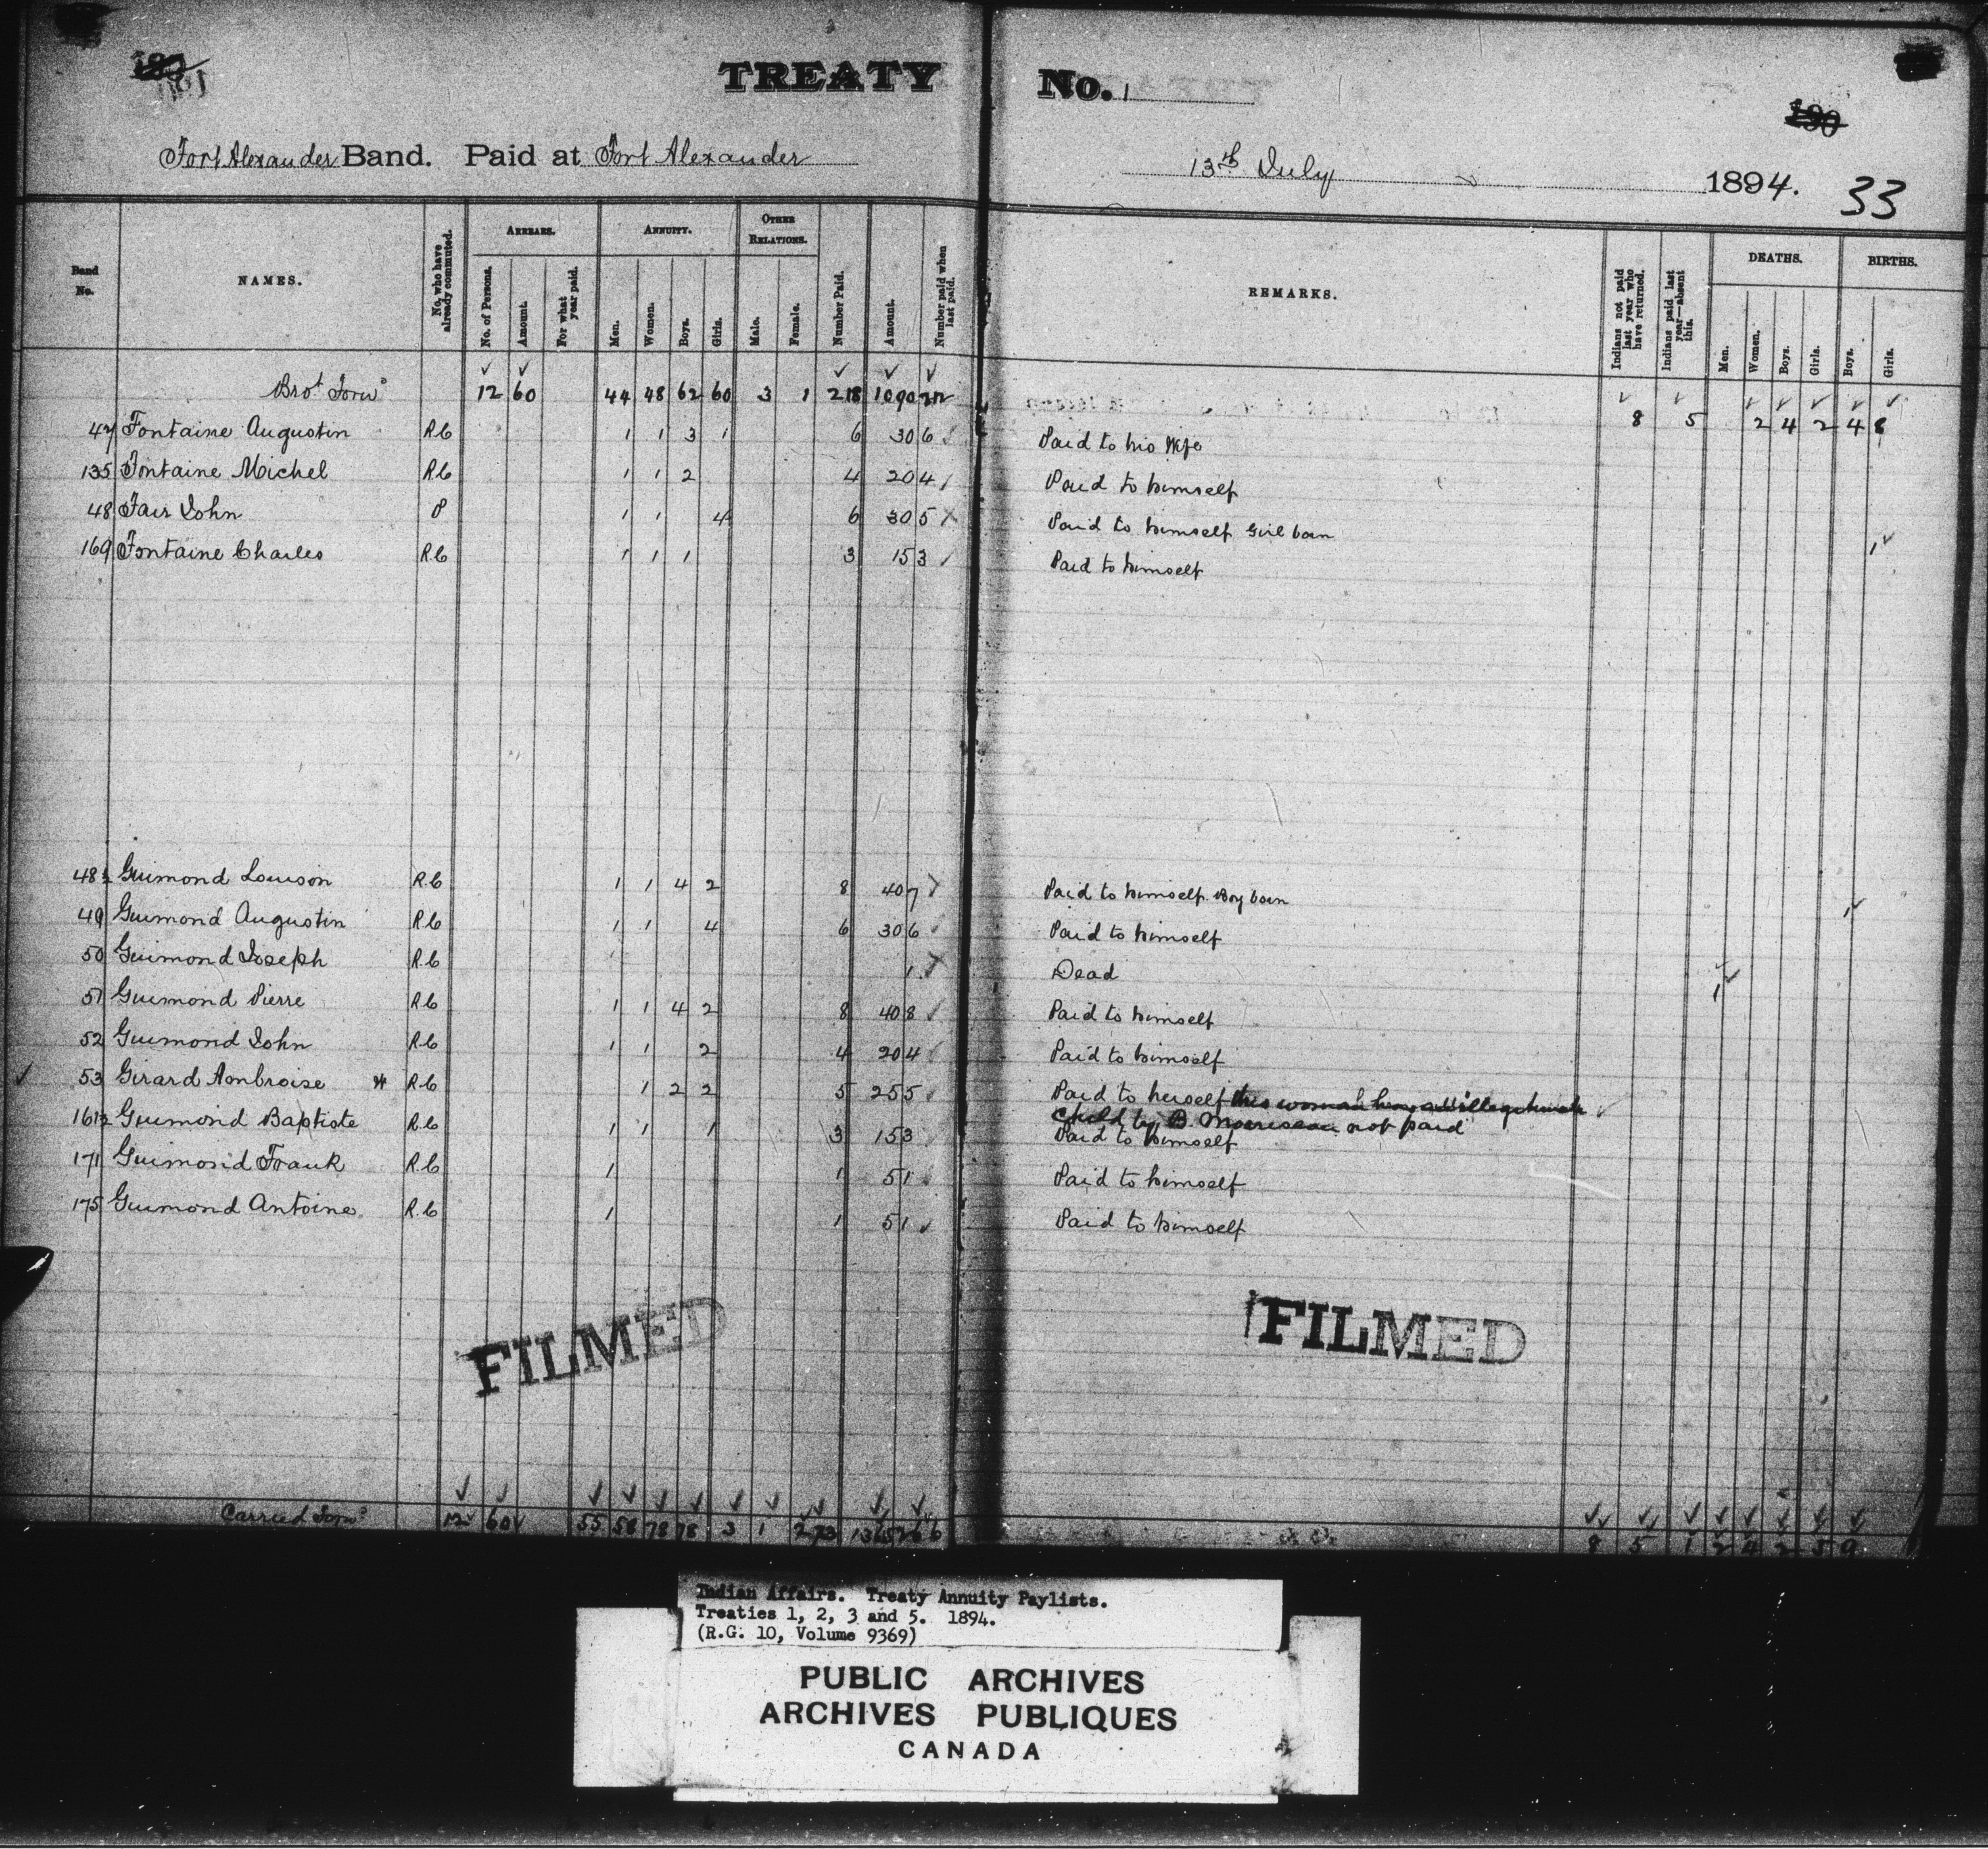 TREATY No. 1
Fort Alexander Band. Paid at Fort Alexander 13th July 1894. 33
Band No. NAMES. No. who have already commuted. ARREARS. No. of Persons. Amount. For what year paid. ANNUITY. Men. Women. Boys. Girls. OTHER RELATIONS. Male. Female. Number Paid. Amount. Number paid when last paid. REMARKS. Indians not paid last year who have returned. Indians paid last year—absent this. DEATHS. Men. Women. Boys. Girls. BIRTHS. Boys. Girls.
Brot Forwd 12 60 44 48 62 60 3 1 218 1090 8 5 2 4 2 4 8
47 Fontaine Augustin R.C 1 1 3 1 6 30 6 Paid to his Wife
135 Fontaine Michel R.C 1 1 2 4 20 4 Paid to himself
48 Fair John P 1 1 4 6 30 5 Paid to himself Girl born 1
169 Fontaine Charles R.C 1 1 1 3 15 3 Paid to himself
48½ Guimond Louison R.C 1 1 4 2 8 40 7 Paid to himself. Boy born 1
49 Guimond Augustin R.C 1 1 4 6 30 6 Paid to himself
50 Guimond Joseph R.C 1 Dead 1
51 Guimond Pierre R.C 1 1 4 2 8 40 8 Paid to himself
52 Guimond John R.C 1 1 2 4 20 4 Paid to himself
53 Girard Ambroise R.C 1 2 2 5 25 5 Paid to herself this woman has an illegitimate
child by B. Morrisseau not paid
161½ Guimond Baptiste R.C 1 1 1 3 15 3 Paid to himself
171 Guimond Frank R.C 1 1 5 1 Paid to himself
175 Guimond Antoine R.C 1 1 5 1 Paid to himself
FILMED FILMED
Carried Forwd 12 60 55 58 78 78 3 1 273 1365 266 8 5 1 2 4 2 5 9
Indian Affairs. Treaty Annuity Paylists.
Treaties 1, 2, 3 and 5. 1894.
(R.G. 10, Volume 9369)
PUBLIC ARCHIVES
ARCHIVES PUBLIQUES
CANADA